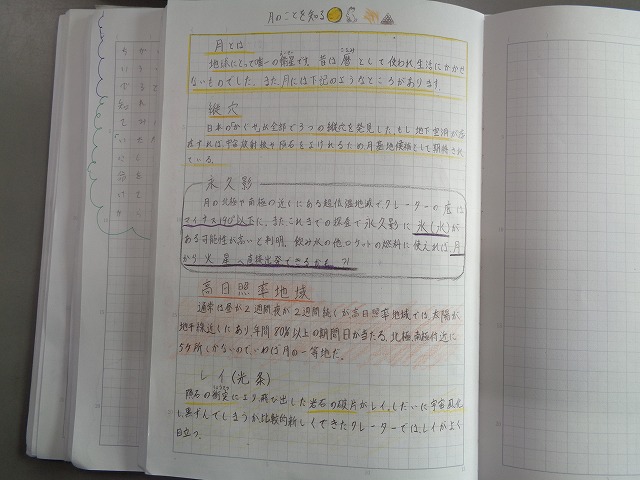 月のことを知る
月とは
地球にとって唯一の衛星です。昔は暦として使われ、生活にかかせ
ないものでした。また、月には下記のようなところがあります。
縦穴
日本の「かぐや」が全部で3つの縦穴を発見した。もし地下空洞が存
在すれば、宇宙放射線や隕石をよけれるため月基地候補として期待され
ている。
永久影
月の北極や南極の近くにある超低温地域で、クレーターの底は
マイナス190℃以下に、またこれまでの探査で永久影に氷(水)が
ある可能性が高いと判明。飲み水の他ロケットの燃料に使えれば、月
から火星へ直接出発できるかも?!
高日照率地域
通常は昼が2週間夜が2週間続くが、高日照率地域では、太陽が
地平線近くにあり、年間80%以上の期間日が当たる。北極、南極付近に
5ヶ所しかないので、いわば月の一等地だ。
レイ(光条)
隕石の衝突により飛び出した岩石の破片がレイ。しだいに宇宙風化
し黒ずんでしまうが比較的新しくできたクレーターでは、レイがよく
目立つ。